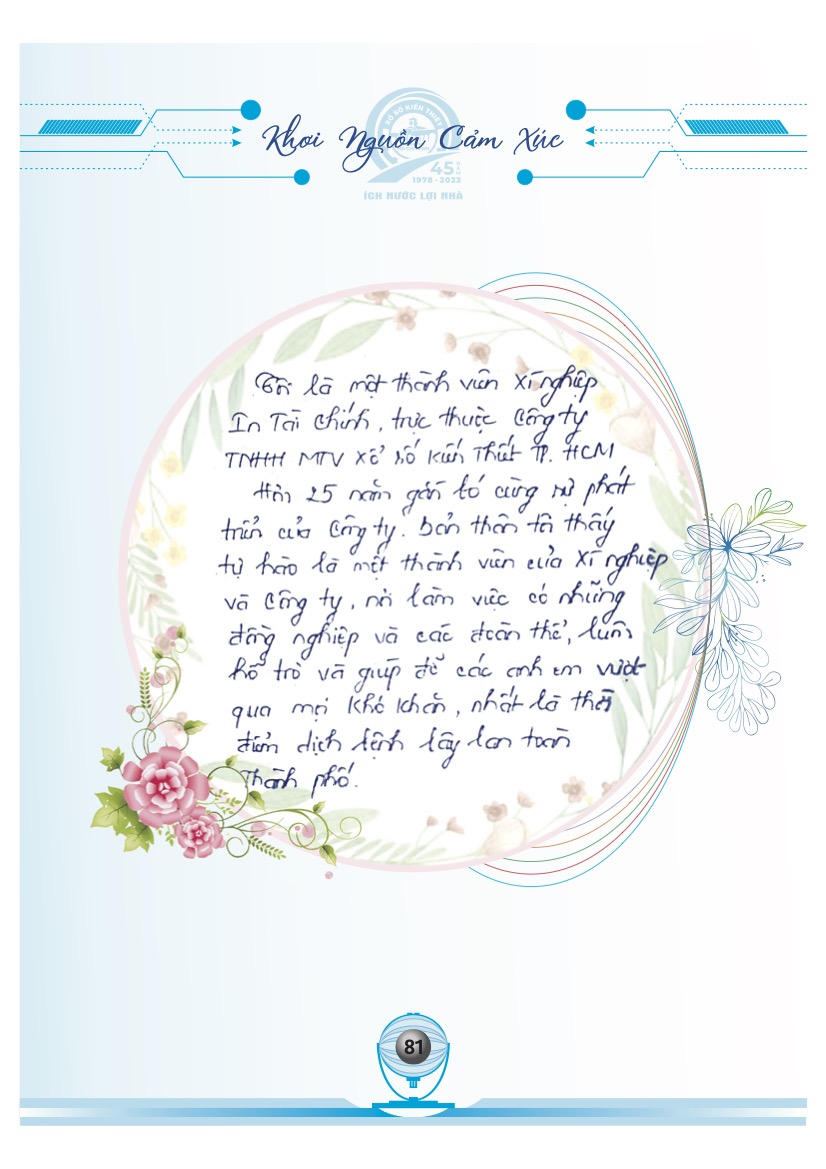 XỔ SỐ KIẾN THIẾT
Khơi Nguồn Cảm Xúc
45 NĂM
1978 - 2023
ÍCH NƯỚC LỢI NHÀ
Tôi là một thành viên Xí nghiệp
In Tài Chính, trực thuộc Công ty
TNHH MTV Xổ số Kiến Thiết TP. HCM
Hơn 25 năm gắn bó cùng sự phát
triển của Công ty. Bản thân tôi thấy
tự hào là một thành viên của Xí nghiệp
và Công ty, nơi làm việc có những
đồng nghiệp và các đoàn thể, luôn
hỗ trợ và giúp đỡ các anh em vượt
qua mọi khó khăn, nhất là thời
điểm dịch bệnh lây lan toàn
Thành phố.
81